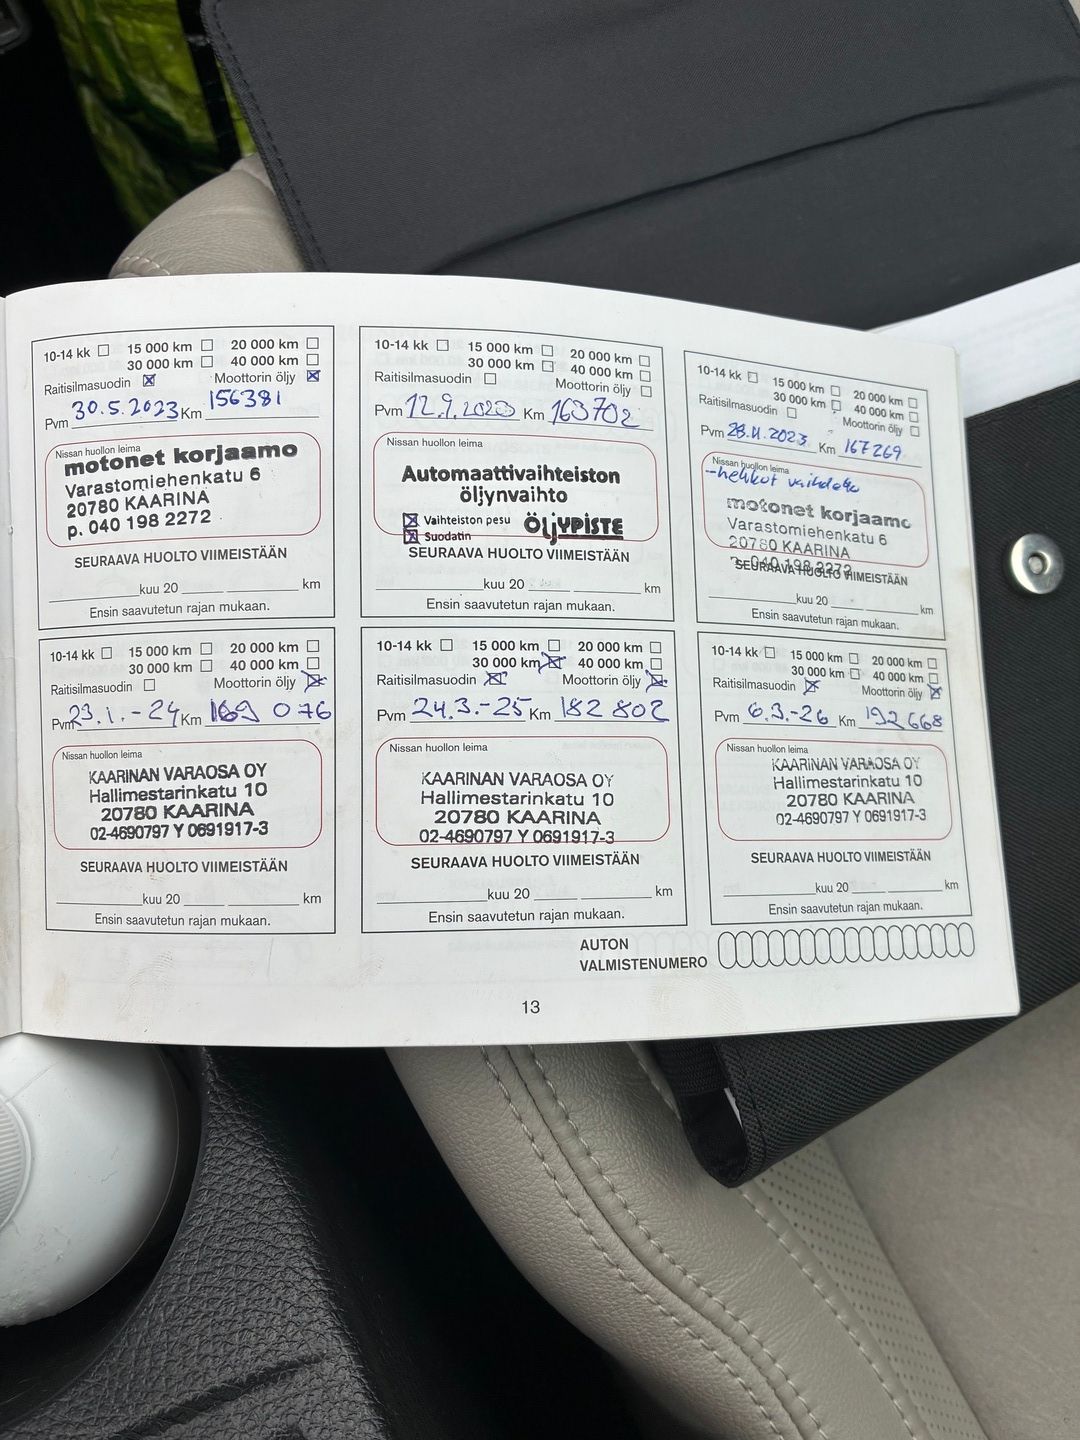 10-14 kk 15 000 km 20 000 km
30 000 km 40 000 km
Raitisilmasuodin Moottorin öljy
Pvm 30.5.2023 Km 156381
Nissan huollon leima
motonet korjaamo
Varastomiehenkatu 6
20780 KAARINA
p. 040 198 2272
SEURAAVA HUOLTO VIIMEISTÄÄN
kuu 20 km
Ensin saavutetun rajan mukaan.
10-14 kk 15 000 km 20 000 km
30 000 km 40 000 km
Raitisilmasuodin Moottorin öljy
Pvm 12.9.2023 Km 163702
Nissan huollon leima
Automaattivaihteiston
öljynvaihto
Vaihteiston pesu ÖljYPISTE
Suodatin
SEURAAVA HUOLTO VIIMEISTÄÄN
kuu 20 km
Ensin saavutetun rajan mukaan.
10-14 kk 15 000 km 20 000 km
30 000 km 40 000 km
Raitisilmasuodin Moottorin öljy
Pvm 28.11.2023 Km 167269
Nissan huollon leima
-hehkut vaihdettu
motonet korjaamo
Varastomiehenkatu 6
20780 KAARINA
p. 040 198 2272
SEURAAVA HUOLTO VIIMEISTÄÄN
kuu 20 km
Ensin saavutetun rajan mukaan.
10-14 kk 15 000 km 20 000 km
30 000 km 40 000 km
Raitisilmasuodin Moottorin öljy
Pvm 23.1.-24 Km 169 076
Nissan huollon leima
KAARINAN VARAOSA OY
Hallimestarinkatu 10
20780 KAARINA
02-4690797 Y 0691917-3
SEURAAVA HUOLTO VIIMEISTÄÄN
kuu 20 km
Ensin saavutetun rajan mukaan.
10-14 kk 15 000 km 20 000 km
30 000 km 40 000 km
Raitisilmasuodin Moottorin öljy
Pvm 24.3.-25 Km 182 802
Nissan huollon leima
KAARINAN VARAOSA OY
Hallimestarinkatu 10
20780 KAARINA
02-4690797 Y 0691917-3
SEURAAVA HUOLTO VIIMEISTÄÄN
kuu 20 km
Ensin saavutetun rajan mukaan.
10-14 kk 15 000 km 20 000 km
30 000 km 40 000 km
Raitisilmasuodin Moottorin öljy
Pvm 6.3.-26 Km 192 668
Nissan huollon leima
KAARINAN VARAOSA OY
Hallimestarinkatu 10
20780 KAARINA
02-4690797 Y 0691917-3
SEURAAVA HUOLTO VIIMEISTÄÄN
kuu 20 km
Ensin saavutetun rajan mukaan.
AUTON
VALMISTENUMERO
13